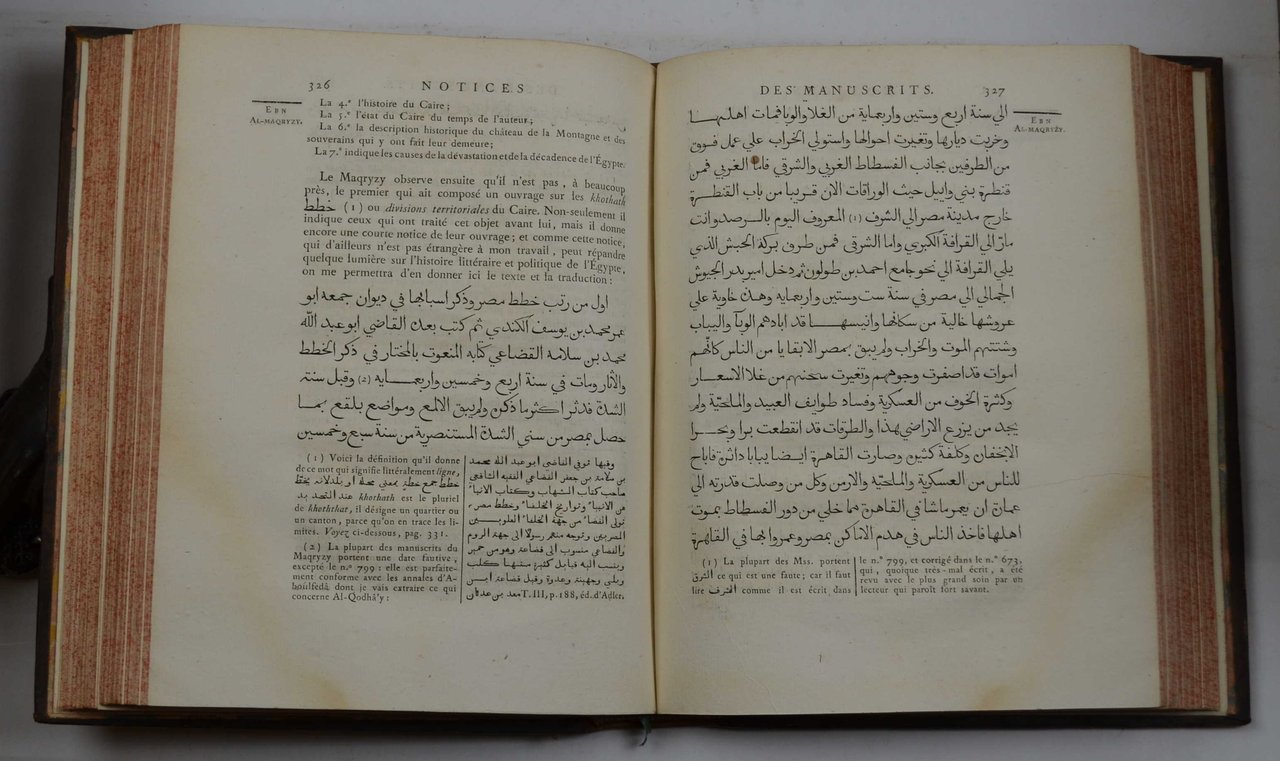 326
NOTICES
EBN
AL-MAQRYZY.
La 4.e l'histoire du Caire;
La 5.e l'état du Caire du temps de l'auteur;
La 6.e la description historique du château de la Montagne et des
souverains qui y ont fait leur demeure;
La 7.e indique les causes de la dévastation et de la décadence de l'Égypte.
Le Maqryzy observe ensuite qu'il n'est pas, à beaucoup
près, le premier qui ait composé un ouvrage sur les khothath
خطط (1) ou divisions territoriales du Caire. Non-seulement il
indique ceux qui ont traité cet objet avant lui, mais il donne
encore une courte notice de leur ouvrage; et comme cette notice,
qui d'ailleurs n'est pas étrangère à mon travail, peut répandre
quelque lumière sur l'histoire littéraire et politique de l'Égypte,
on me permettra d'en donner ici le texte et la traduction:
اول من رتب خطط مصر وذكر اسبابها في ديوان جمعه ابو
عمر محمد بن يوسف الكندي ثم كتب بعده القاضي ابو عبد الله
محمد بن سلامة القضاعي كتابه المنعوت بالمختار في ذكر الخطط
والاثار ومات في سنة اربع وخمسين واربعمايه (2) وقبل سنة
الشدة فدثر اكثر ما ذكره ولم يبق الا يلمع ومواضع بلقع بما
حصل بمصر من سني الشدة المستنصرية من سنة سبع وخمسين
(1) Voici la définition qu'il donne
de ce mot qui signifie littéralement ligne,
خطط جمع خطة بمعني محلة او بلد لانه يختط
عند القصد به khothath est le pluriel
de khoththat, il désigne un quartier ou
un canton, parce qu'on en trace les li-
mites. Voyez ci-dessous, pag. 331.
(2) La plupart des manuscrits du
Maqryzy portent une date fautive,
excepté le n.o 799: elle est parfaite-
ment conforme avec les annales d'A-
boûlfedâ dont je vais extraire ce qui
concerne Al-Qodhâ'y:
وفيها توفي القاضي ابو عبد الله محمد
بن سلامة بن جعفر القضاعي الفقيه الشافعي
صاحب كتاب الشهاب وكتاب الانباء
عن الانبياء وتواريخ الخلفاء وخطط مصر،
تولي القضاء من جهة الخلفاء العلويين
المصريين وتوجه منهم رسولا الي جهة الروم
والقضاعي منسوب الي قضاعة وهو من حمير
وينسب اليه قبايل كثيرة منها كلب
وبلي وجهينة وعذرة وقيل قضاعة ابن
معد بن عدنان T. III, p. 188, éd. d'Adler.
DES MANUSCRITS.
327
EBN
AL-MAQRYZY.
الي سنة اربع وستين واربعماية من الغلا والوبا فمات اهلها
وخربت ديارها وتغيرت احوالها واستولي الخراب علي عمل فوق
من الطرفين بجانب الفسطاط الغربي والشرقي فاما الغربي فمن
قنطرة بني وايل حيث الوراقات الان قريبا من باب القنطرة
خارج مدينة مصر الي الشرف (1) المعروف اليوم بالرصد وانت
مار الي القرافة الكبري واما الشرقي فمن طرف بركة الحبش الذي
يلي القرافة الي نحو جامع احمد بن طولون ثم دخل امير بدر الجيوش
الجمالي الي مصر في سنة ست وستين واربعمايه وهذه خاوية علي
عروشها خالية من سكانها وانيسها قد ابادهم الوبآ واليباب
وشتتهم الموت والخراب ولم يبق بمصر الا بقايا من الناس كانهم
اموات قد اصفرت وجوههم وتغيرت سحنهم من غلا الاسعار
وكثرة الخوف من العسكرية وفساد طوايف العبيد والملحية ولم
يجد من يزرع الاراضي هذا والطرقات قد انقطعت برا وبحرا
الا بخفان وكلفة كثيرة وصارت القاهرة ايضا يبابا داثرة فاباح
للناس من العسكرية والملحية والارمن وكل من وصلت قدرته الي
عمارة ان يعمر ما شا في القاهرة مما خلي من دور الفسطاط بموت
اهلها فاخذ الناس في هدم الاماكن بمصر وعمروا بها في القاهرة
(1) La plupart des Mss. portent
الشرق ce qui est une faute; car il faut
lire الشرف comme il est écrit dans
le n.o 799, et corrigé dans le n.o 673,
qui, quoique très-mal écrit, a été
revu avec le plus grand soin par un
lecteur qui paroît fort savant.